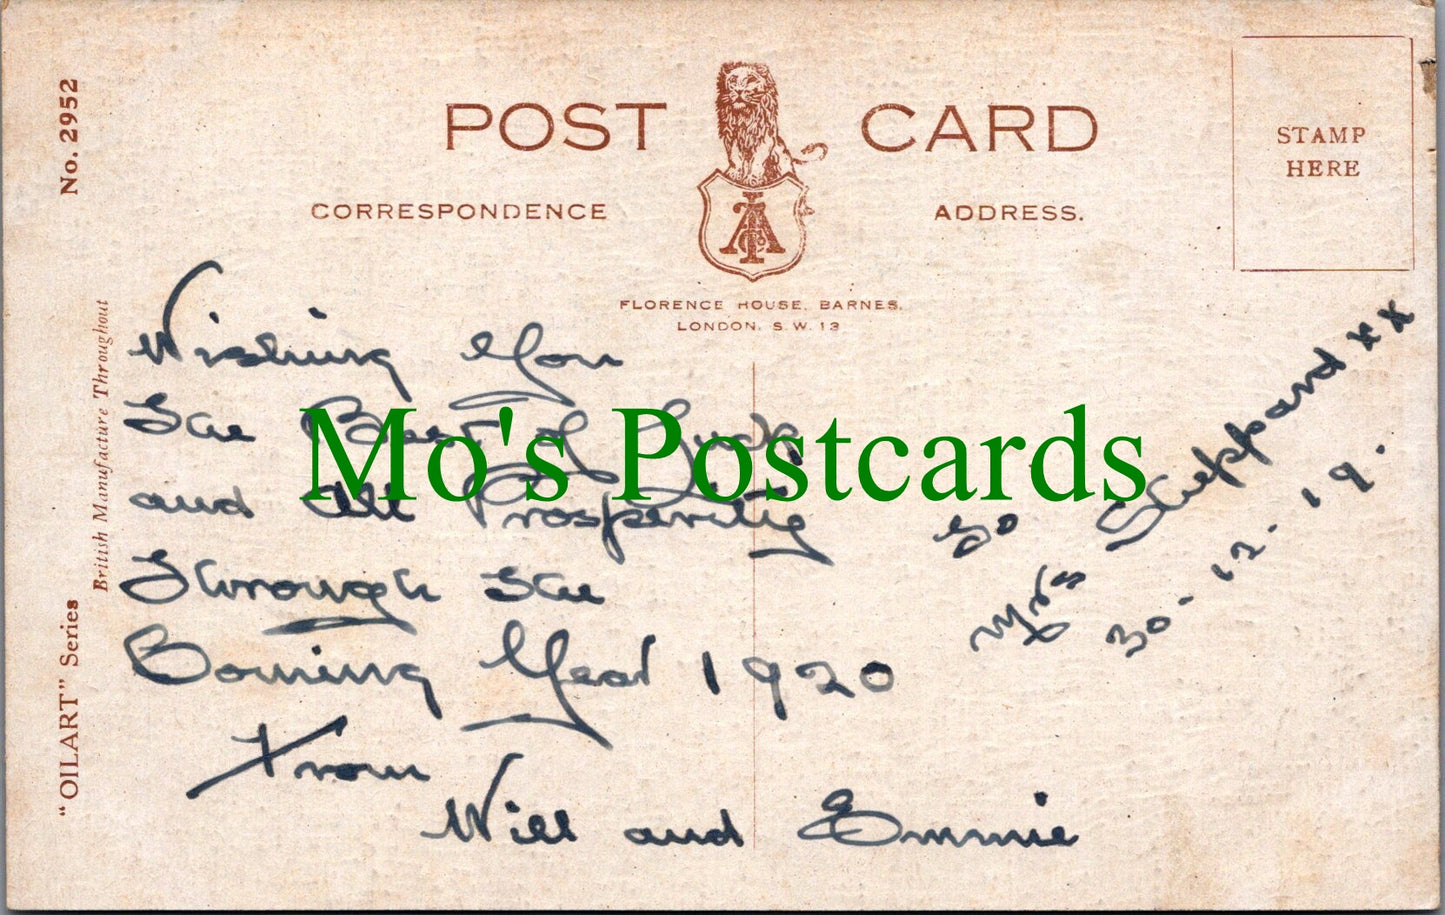 POST CARD
CORRESPONDENCE
ADDRESS.
STAMP
HERE
FLORENCE HOUSE, BARNES,
LONDON, S.W. 13
No. 2952
British Manufacture Throughout
"OILART" Series
Wishing You
The Best of Luck
and All Prosperity
Through The
Coming Year 1920
From
Will and Emmie
To
Mrs Sheppard xx
30-12-19.
Mo's Postcards